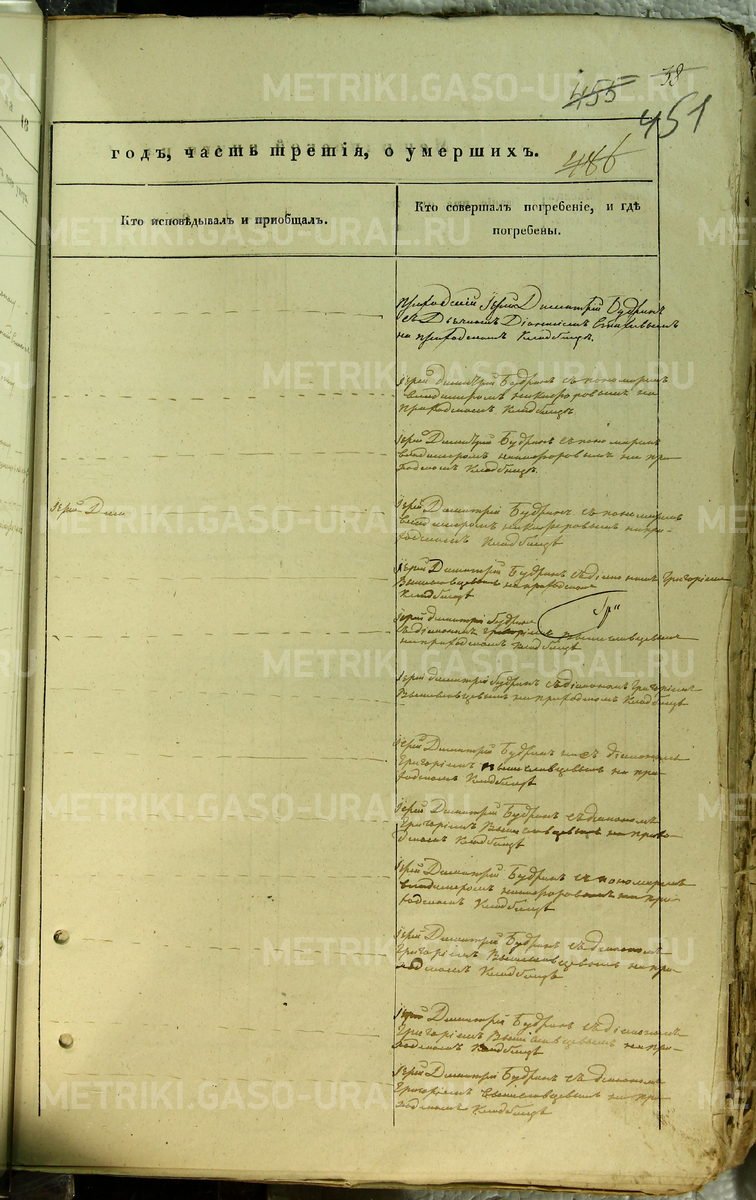 455 58
451
годъ, часть третія, о умершихъ.
486
Кто исповѣдывалъ и приобщалъ.
Кто совершалъ погребеніе, и гдѣ
погребены.
Приходскій Іерей Димитрій Будринъ
съ Дьячкомъ
на приходскомъ Кладбищѣ.
Іерей Димитрій Будринъ съ пономаремъ
Владимеромъ Никифоровымъ на
Приходскомъ Кладбищѣ
Іерей Димитрій Будринъ съ пономаремъ
Владимеромъ Никифоровымъ на при-
ходскомъ Кладбищѣ.
Іерей Дими
Іерей Димитрій Будринъ съ пономаремъ
Владимеромъ Никифоровымъ на при-
ходскомъ Кладбищѣ
Іерей Димитрій Будринъ съ діакономъ Григоріемъ
на приходскомъ
Кладбищѣ
Іерей Димитрій Будринъ
съ діакономъ Григоріемъ
на приходскомъ Кладбищѣ
Іерей Димитрій Будринъ съ діакономъ Григоріемъ
на приходскомъ Кладбищѣ
Іерей Димитрій Будринъ съ діакономъ
Григоріемъ на при-
ходскомъ Кладбищѣ
Іерей Димитрій Будринъ съ діакономъ
Григоріемъ на прихо-
дскомъ Кладбищѣ
Іерей Димитрій Будринъ съ пономаремъ
Владимеромъ Никифоровымъ на при-
ходскомъ Кладбищѣ
Іерей Димитрій Будринъ съ діакономъ
Григоріемъ на при-
ходскомъ Кладбищѣ
Іерей Димитрій Будринъ съ діакономъ
Григоріемъ на при-
ходскомъ Кладбищѣ
Іерей Димитрій Будринъ съ діакономъ
Григоріемъ на при-
ходскомъ Кладбищѣ
METRIKI.GASO-URAL.RU